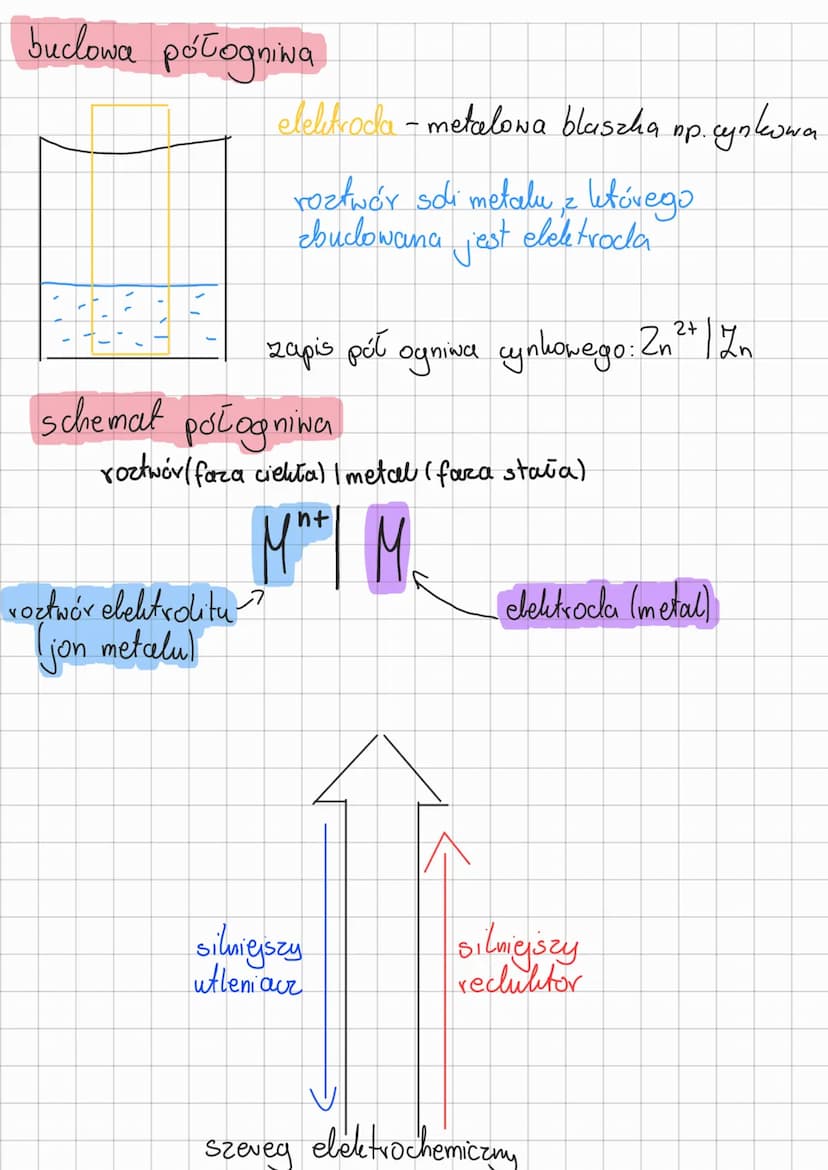 budowa półogniwa
elektroda - metalowa blaszka np. cynkowa
roztwór soli metalu, z którego
zbudowana jest elektroda
zapis pół ogniwa cynkowego: Zn²⁺ | Zn
schemat półogniwa
roztwór (faza ciekła) | metal (faza stała)
Mⁿ⁺ | M
roztwór elektrolitu
(jon metalu)
elektroda (metal)
silniejszy
utleniacz
silniejszy
reduktor
szereg elektrochemiczny